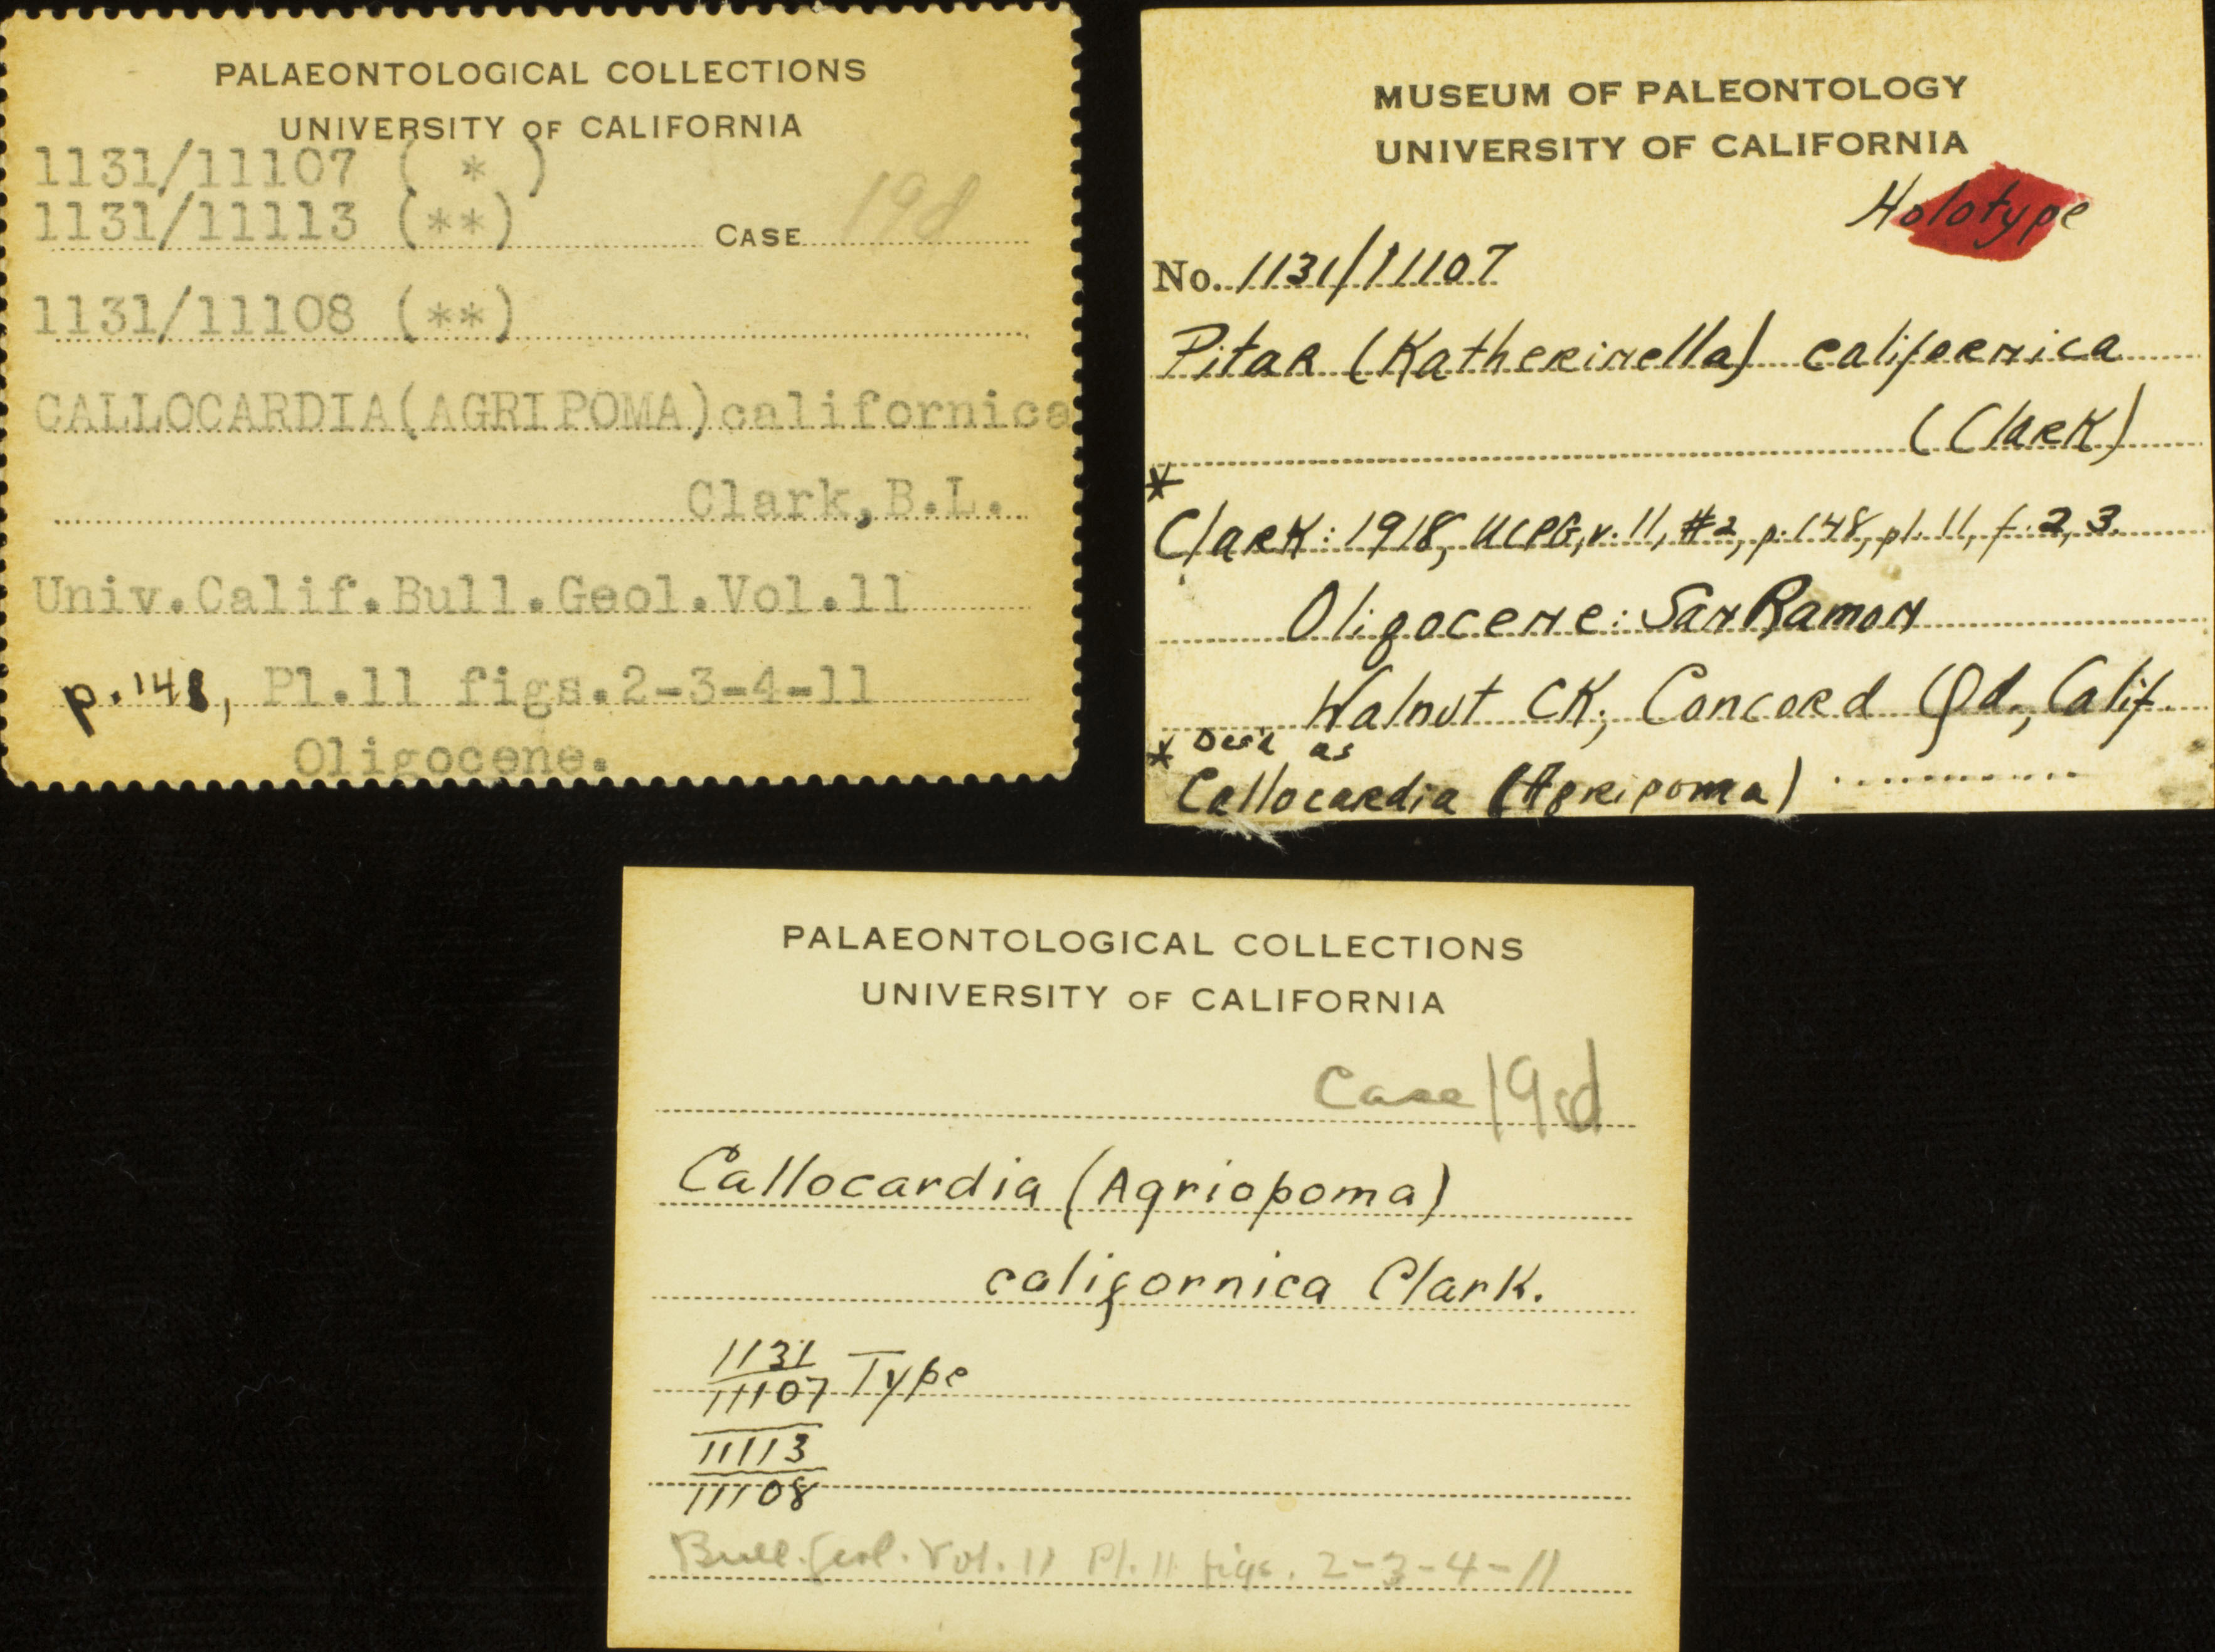 PALAEONTOLOGICAL COLLECTIONS
UNIVERSITY OF CALIFORNIA
1131/11107 ( * )
1131/11113 (**) CASE 19d
1131/11108 (**)
CALLOCARDIA(AGRIPOMA)californica
Clark,B.L.
Univ.Calif.Bull.Geol.Vol.11
p.148, Pl.11 figs.2-3-4-11
Oligocene.
MUSEUM OF PALEONTOLOGY
UNIVERSITY OF CALIFORNIA
Holotype
No. 1131/11107
Pitar (Katherinella) californica
(Clark)
*
Clark: 1918, UCPG, v. 11, #2, p. 148, pl. 11, f. 2, 3.
Oligocene: San Ramon
Walnut CK, Concord Qd., Calif.
* Desc as
Callocardia (Agripoma)
PALAEONTOLOGICAL COLLECTIONS
UNIVERSITY OF CALIFORNIA
Case 19d
Callocardia (Agriopoma)
californica Clark.
1131
11107 Type
11113
11108
Bull. Geol. Vol. 11 Pl. 11 figs. 2-3-4-11